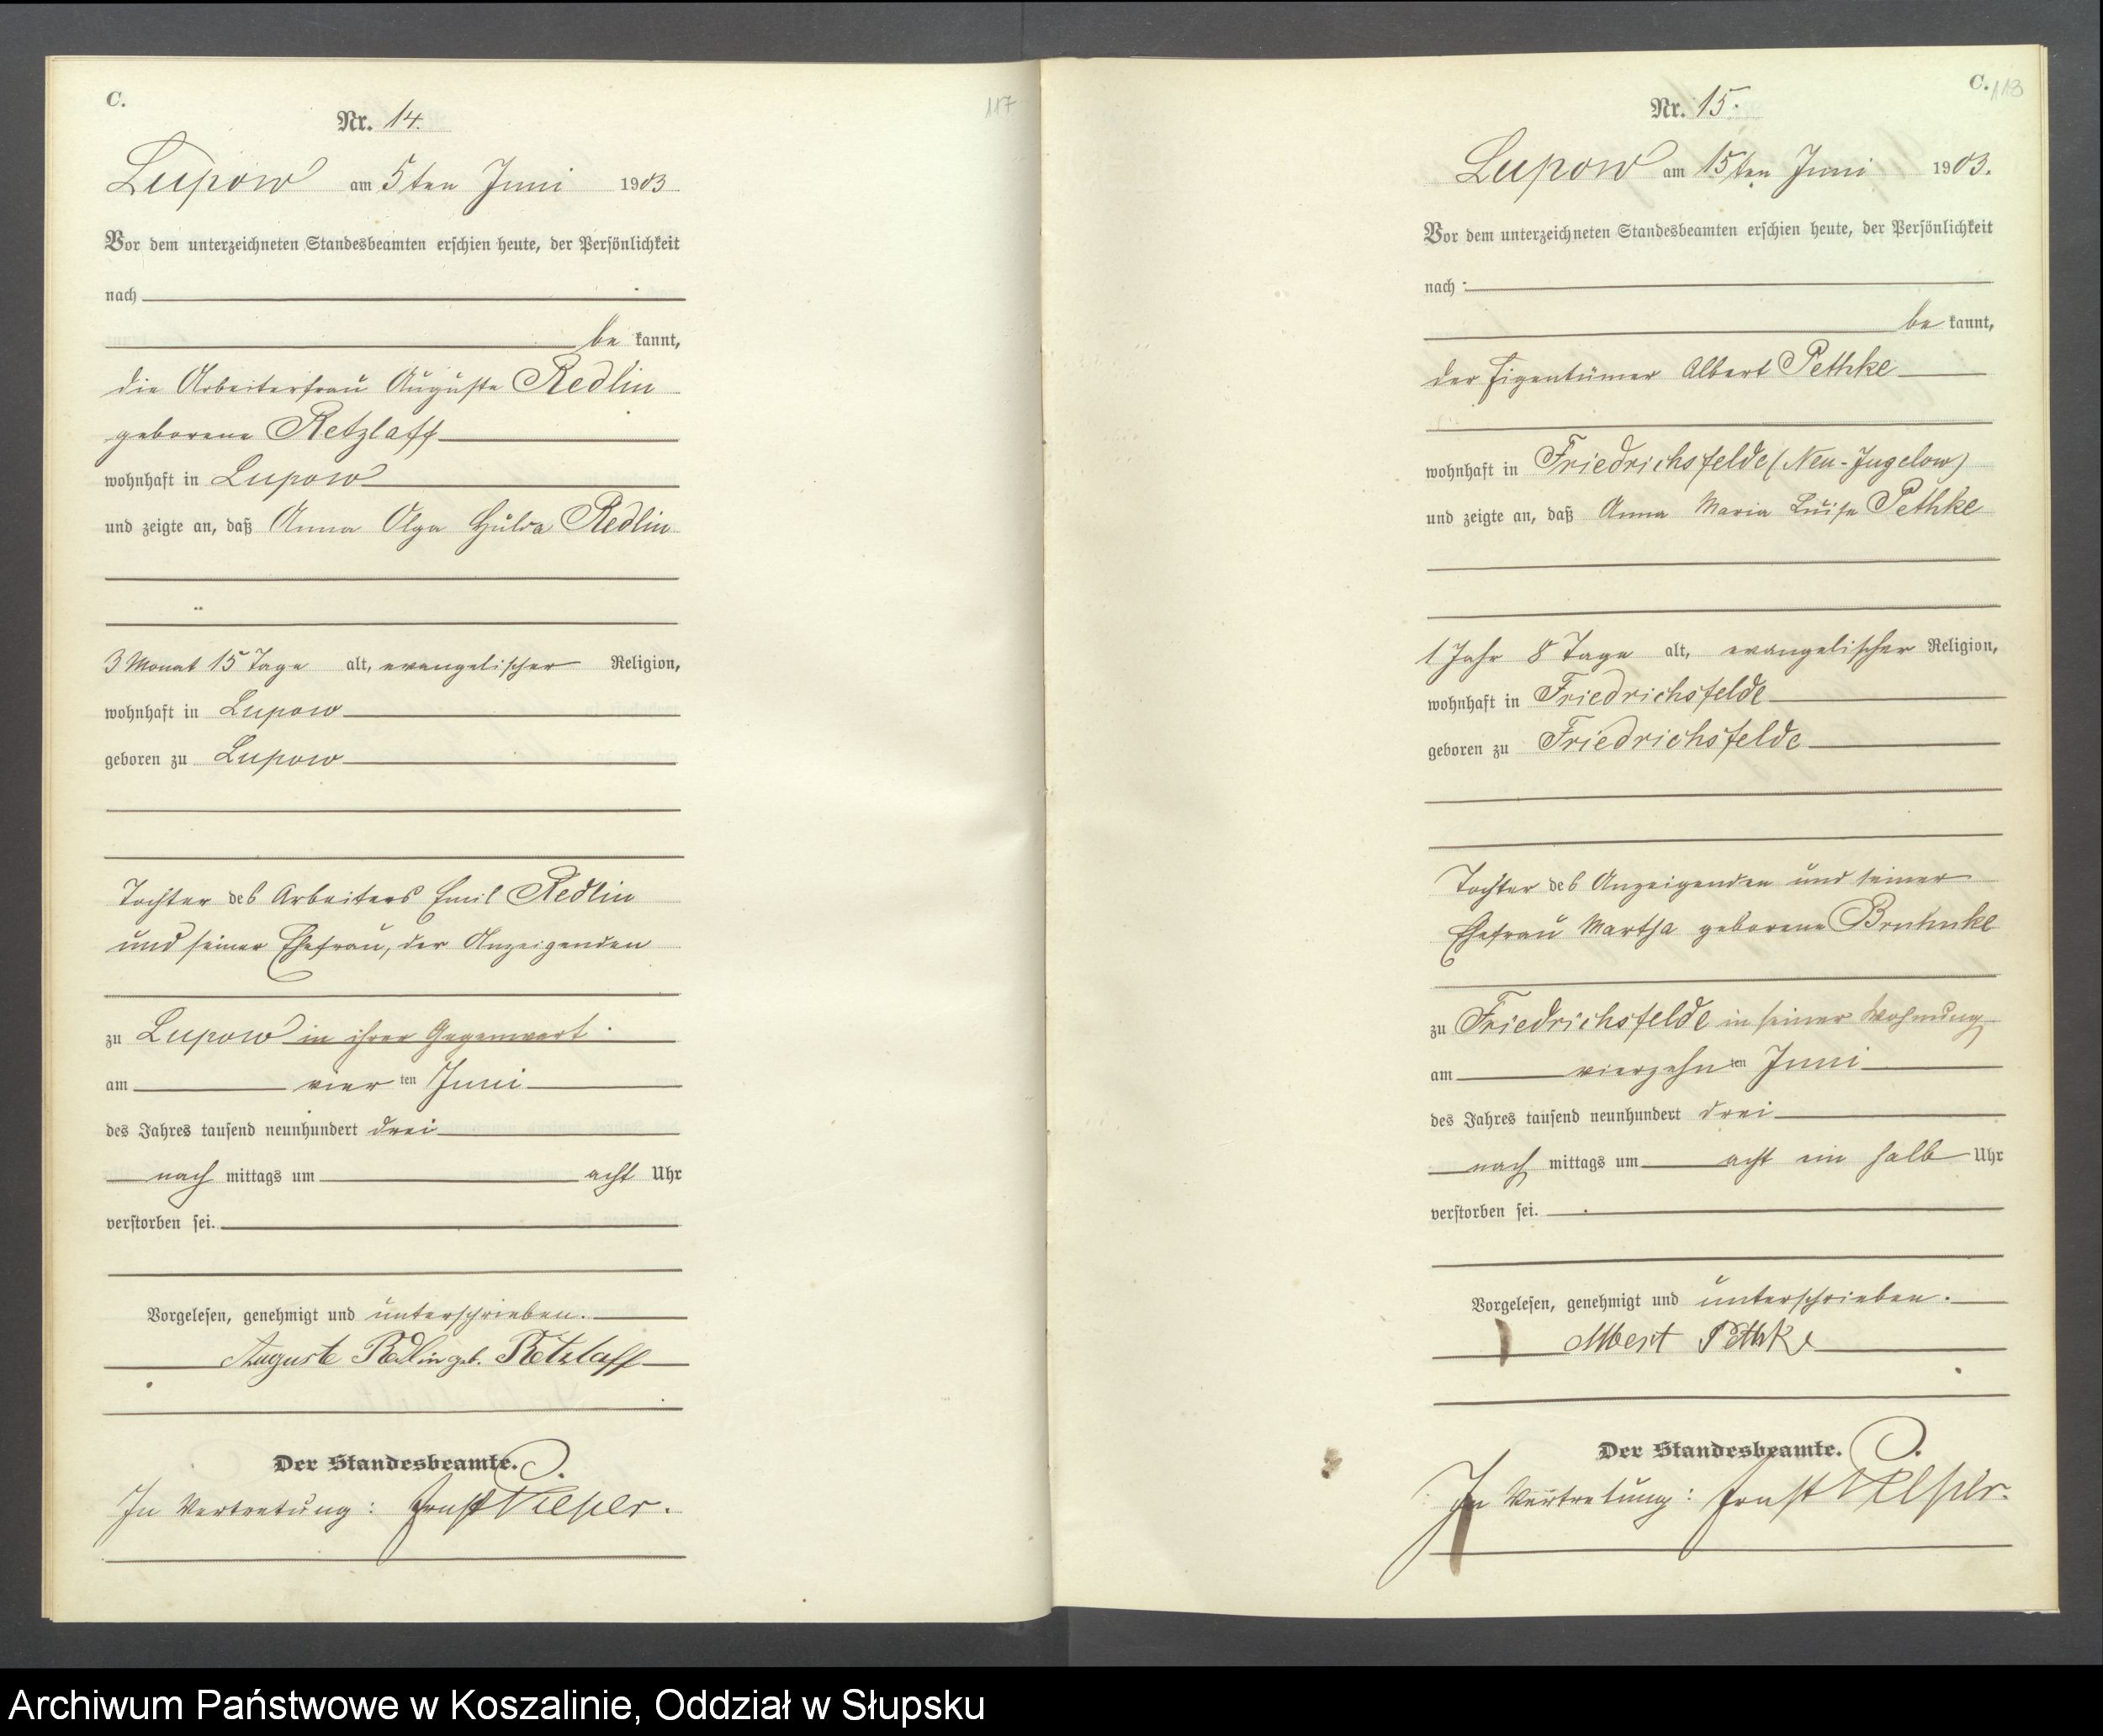 C.
117
Nr. 14.
Lupow am 5ten Juni 1903
Vor dem unterzeichneten Standesbeamten erschien heute, der Persönlichkeit
nach
be kannt,
die Arbeiterfrau Auguste Redlin
geborene Retzlaff
wohnhaft in Lupow
und zeigte an, daß Anna Olga Hulda Redlin
3 Monat 15 Tage alt, evangelischer Religion,
wohnhaft in Lupow
geboren zu Lupow
Tochter des Arbeiters Emil Redlin
und seiner Ehefrau, der Anzeigenden
zu Lupow in ihrer Gegenwart
am vier ten Juni
des Jahres tausend neunhundert drei
nach mittags um acht Uhr
verstorben sei.
Vorgelesen, genehmigt und unterschrieben.
Auguste Redlin geb. Retzlaff
Der Standesbeamte.
In Vertretung: Ernst
C. 113
Nr. 15.
Lupow am 15ten Juni 1903.
Vor dem unterzeichneten Standesbeamten erschien heute, der Persönlichkeit
nach
be kannt,
der Eigentümer Albert Pethke
wohnhaft in Friedrichsfelde (Neu-Jugelow)
und zeigte an, daß Anna Maria Luise Pethke
1 Jahr 8 Tage alt, evangelischer Religion,
wohnhaft in Friedrichsfelde
geboren zu Friedrichsfelde
Tochter des Anzeigenden und seiner
Ehefrau Martha geborene
zu Friedrichsfelde in seiner Wohnung
am vierzehn ten Juni
des Jahres tausend neunhundert drei
nach mittags um acht ein halb Uhr
verstorben sei.
Vorgelesen, genehmigt und unterschrieben.
Albert Pethke
Der Standesbeamte.
In Vertretung: Ernst
Archiwum Państwowe w Koszalinie, Oddział w Słupsku